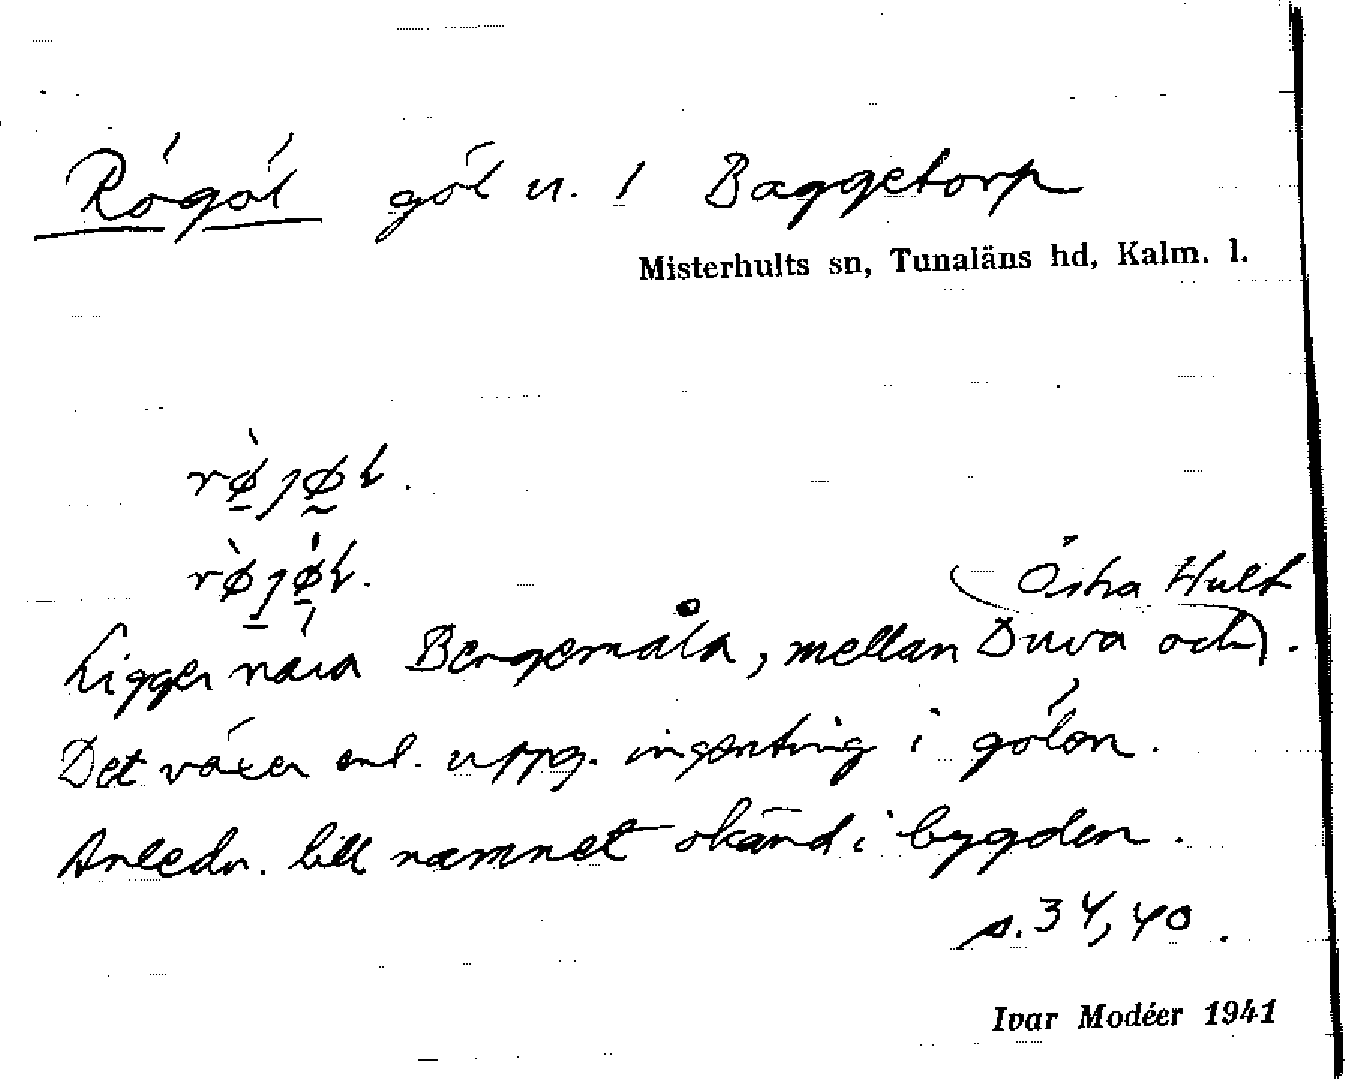 Rögöl göl n. 1 Baggetorp
Misterhults sn, Tunaläns hd, Kalm. l.
Östra Hult
Ligger nära Bergemåla, mellan Duva och ).
Det växer enl. uppg. ingenting i gölen.
Anledn. till namnet okänd i bygden.
s. 34, 40.
Ivar Modéer 1941